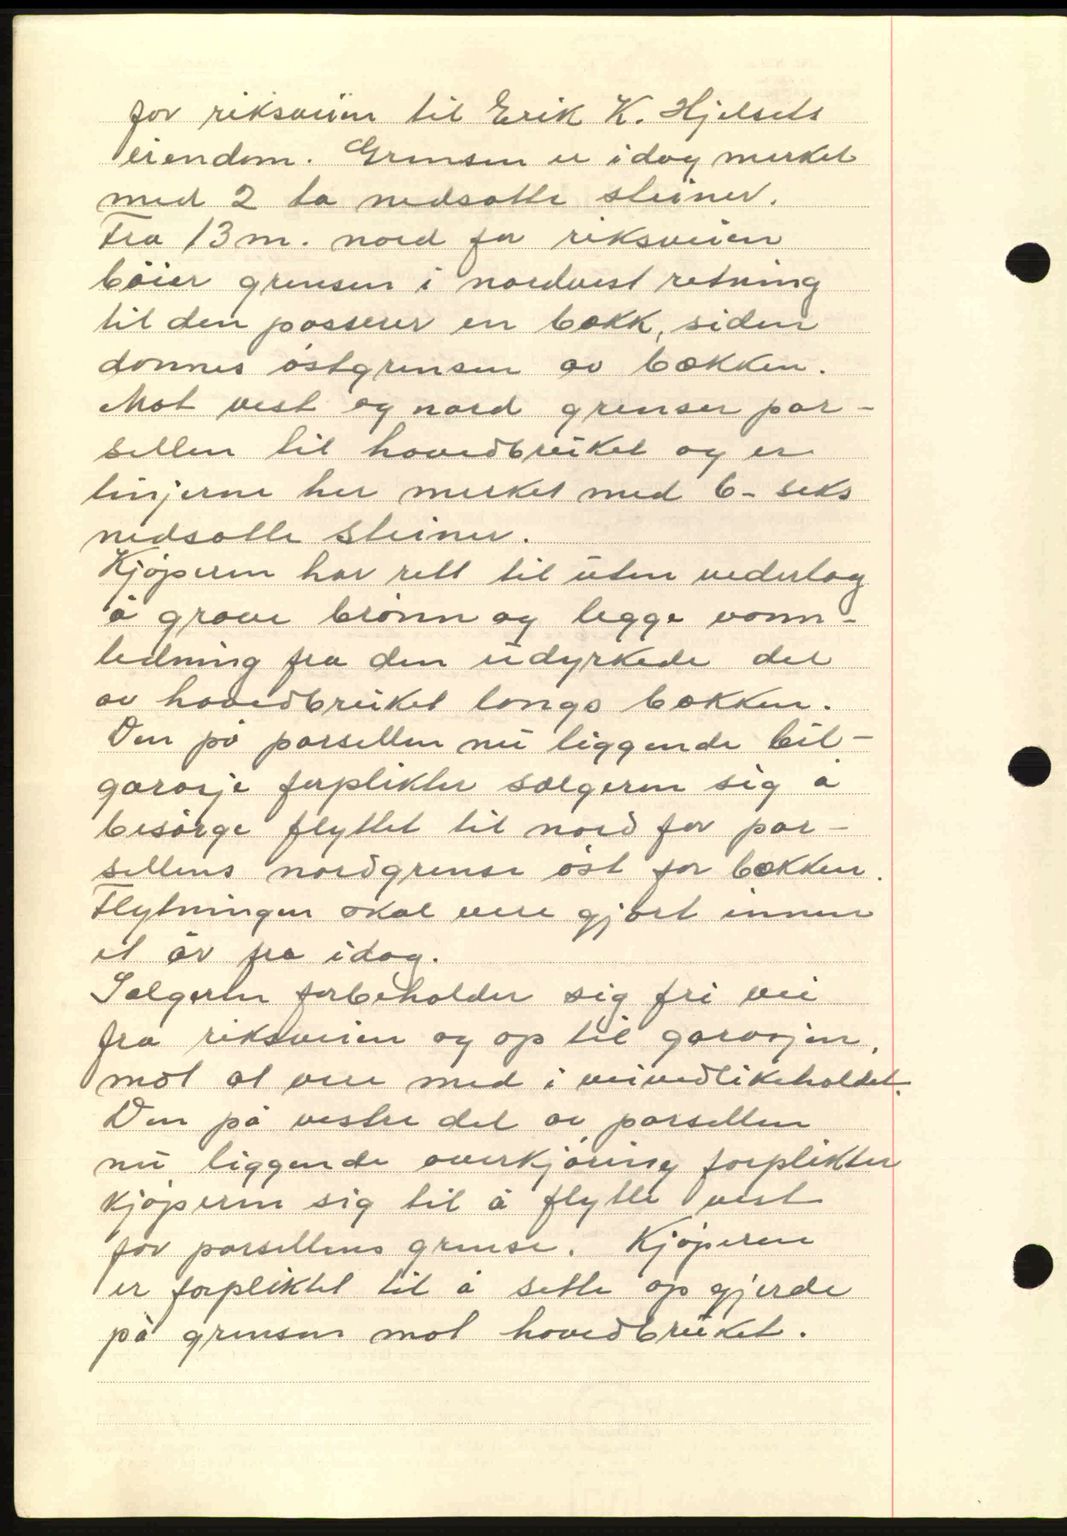 for riksveien til Erik K. Hjelsets
eiendom. Grensen er idag merket
med 2 to nedsatte steiner.
Fra 13 m. nord for riksveien
bøier grensen i nordvest retning
til den passerer en bækk, siden
dannes østgrensen av bækken.
Mot vest og nord grenser par-
sellen til hovedbruket og er
linjerne her merket med 6- seks
nedsatte steiner.
Kjøperen har rett til uten vederlag
å grave brønn og legge vann-
ledning fra den udyrkede del
av hovedbruket langs bækken.
Den på parsellen nu liggende bil-
garasje forplikter sælgeren sig å
besørge flyttet til nord for par-
sellens nordgrense øst for bækken.
Flytningen skal være gjort innen
et år fra idag.
Sælgeren forbeholder sig fri vei
fra riksveien og op til garasjen,
mot at være med i veivedlikeholdet.
Den på vestre del av parsellen
nu liggende overkjøring forplikter
kjøperen sig til å flytte vest
for parsellens grense. Kjøperen
er forpliktet til å sette op gjerde
på grensen mot hovedbruket.